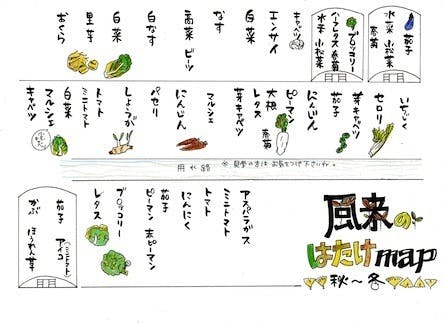 茄子
水菜 小松菜
ブロッコリー
ハナレタス 春菊
水菜 小松菜
キャベツ
エンサイ
白菜
なす
高菜 ビーツ
白なす
白菜
里芋
おくら
セロリ
芽キャベツ
茄子
にんじん
ピーマン
大根
レタス
春菊
芽キャベツ
マルシェ
にんじん
パセリ
しょうが
トマト
ミニトマト
白菜
マルシェ
キャベツ
用水路
アスパラガス
ミニトマト
トマト
にんにく
茄子
ピーマン 赤ピーマン
ブロッコリー
レタス
茄子 アイコ(ミニトマト)
かぶ ほうれん草
風来の
はたけmap
秋〜冬